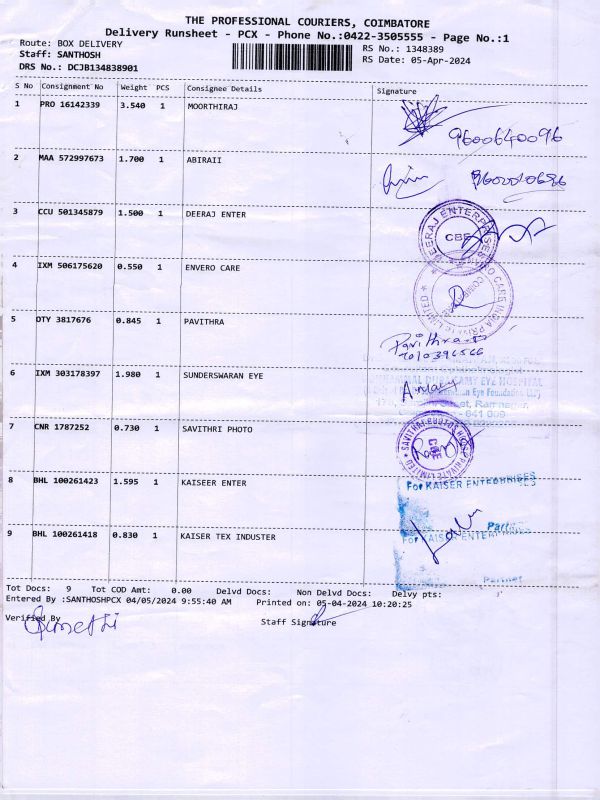 THE PROFESSIONAL COURIERS, COIMBATORE
Delivery Runsheet - PCX - Phone No.:0422-3505555 - Page No.:1
Route: BOX DELIVERY RS No.: 1348389
Staff: SANTHOSH RS Date: 05-Apr-2024
DRS No.: DCJB134838901
S No Consignment No Weight PCS Consignee Details Signature
1 PRO 16142339 3.540 1 MOORTHIRAJ
9600640096
2 MAA 572997673 1.700 1 ABIRAII
3 CCU 501345879 1.500 1 DEERAJ ENTER
DEERAJ ENTERPRISES
CBE
4 IXM 506175620 0.550 1 ENVERO CARE
CARE INDIA PRIVATE LIMITED
5 OTY 3817676 0.845 1 PAVITHRA
Pavithra
6 IXM 303178397 1.980 1 SUNDERSWARAN EYE
EYE HOSPITAL
Eye Foundation
Street, Ramnagar,
641 009
7 CNR 1787252 0.730 1 SAVITHRI PHOTO
SAVITHRI PHOTOS PRIVATE LIMITED
CBE
8 BHL 100261423 1.595 1 KAISEER ENTER
For KAISER ENTERPRISES
9 BHL 100261418 0.830 1 KAISER TEX INDUSTER
For KAISER ENTERPRISES
Partner
Tot Docs: 9 Tot COD Amt: 0.00 Delvd Docs: Non Delvd Docs: Delvy pts:
Entered By :SANTHOSHPCX 04/05/2024 9:55:40 AM Printed on: 05-04-2024 10:20:25
Verified By Staff Signature